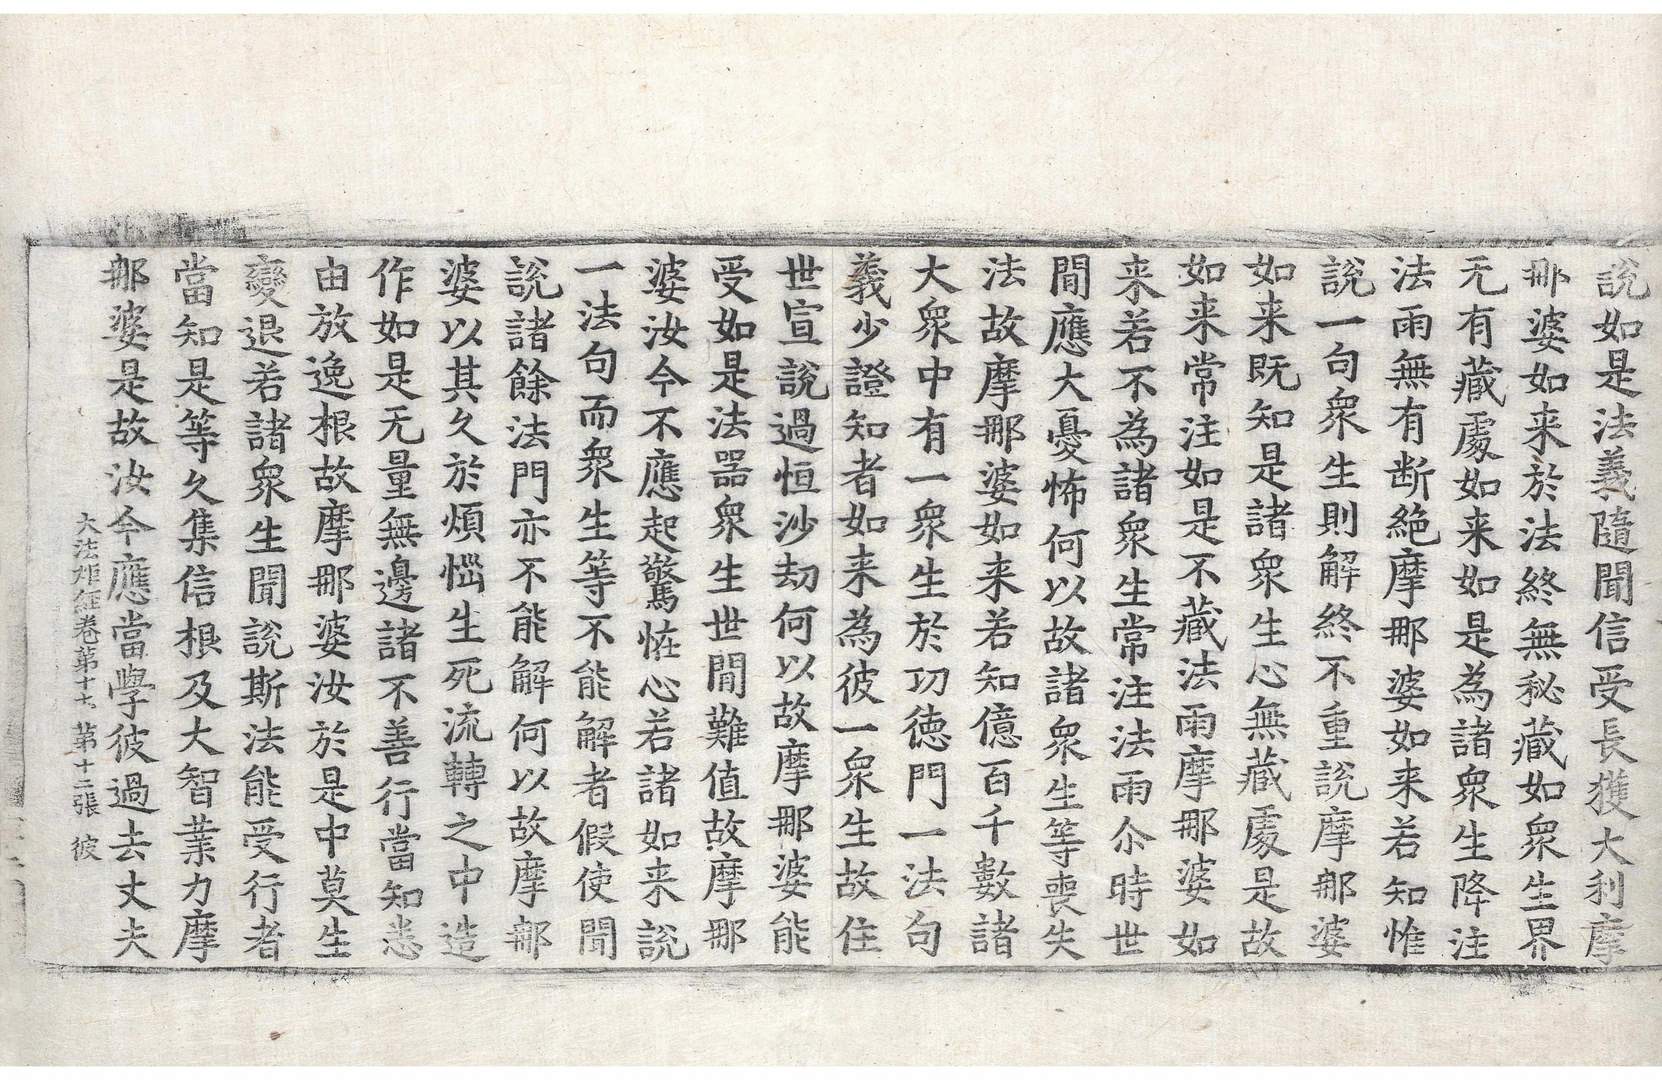 說如是法義隨聞信受長獲大利摩
那婆如来於法終無秘藏如衆生界
无有藏處如来如是為諸衆生降注
法雨無有断絶摩那婆如来若知惟
說一句衆生則解終不重說摩那婆
如来既知是諸衆生心無藏處是故
如来常注如是不藏法雨摩那婆如
来若不為諸衆生常注法雨尒時世
間應大憂怖何以故諸衆生等喪失
法故摩那婆如来若知億百千數諸
大衆中有一衆生於功德門一法句
義少證知者如来為彼一衆生故住
世宣說過恒沙劫何以故摩那婆能
受如是法器衆生世間難值故摩那
婆汝今不應起驚恠心若諸如来說
一法句而衆生等不能解者假使聞
說諸餘法門亦不能解何以故摩那
婆以其久於煩惱生死流轉之中造
作如是无量無邊諸不善行當知悉
由放逸根故摩那婆汝於是中莫生
變退若諸衆生聞說斯法能受行者
當知是等久集信根及大智業力摩
那婆是故汝今應當學彼過去丈夫
大法炬經卷第十七 第十二張 彼